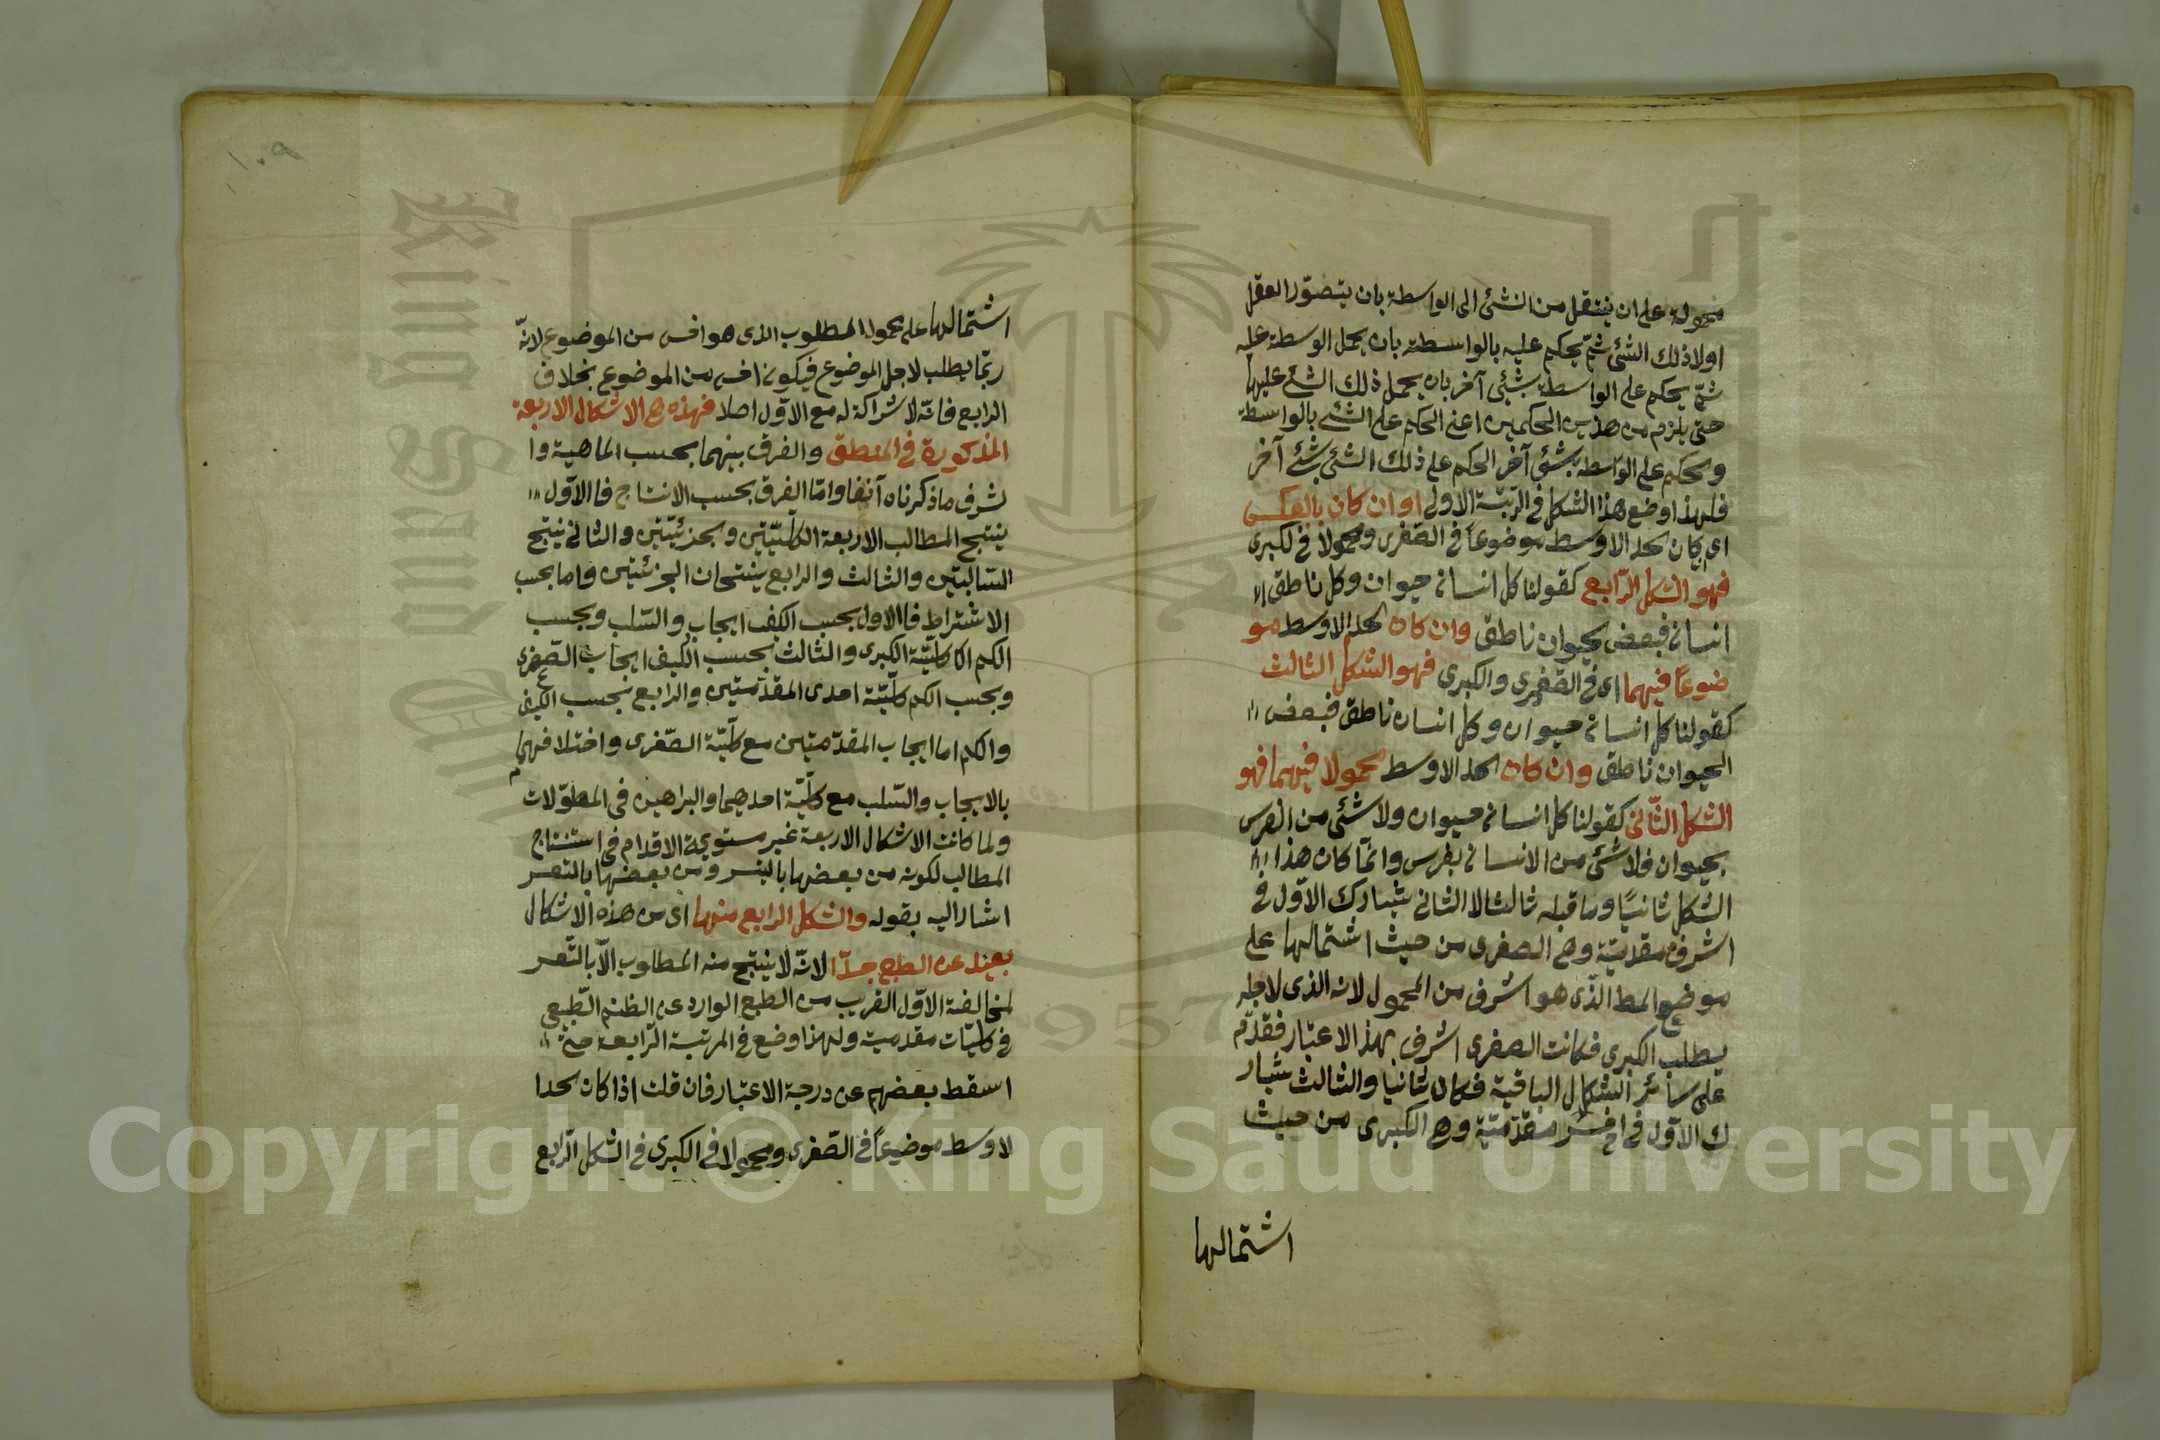 مجبولة على ان ينتقل من الشئ الى الواسطة بان يتصوّر العقل
اولا ذلك الشئ ثمّ يحكم عليه بالواسطة بان يحمل الوسطة عليه
ثمّ يحكم على الواسطة بشئ آخر بان يحمل ذلك الشئ عليها
حتى يلزم من هذين الحكمين اعنى الحكم على الشئ بالواسطة
وحكم على الواسطة بشئ آخر الحكم على ذلك الشئ بشئ آخر
فلهذا وضع هذا الشكل فى الرتبة الاولى اوان كان بالعكس
اى كان الحد الاوسط موضوعاً فى الصّغرى ومحمولا فى الكبرى
فهو الشكل الرّابع كقولنا كل انسان حيوان وكل ناطق
انسان فبعض الحيوان ناطق وان كان الحد الاوسط مو
ضوعاً فيهما اى فى الصّغرى والكبرى فهو الشكل الثالث
كقولنا كل انسان حيوان وكل انسان ناطق فبعض
الحيوان ناطق وان كان الحد الاوسط محمولا فيهما فهو
الشكل الثّانى كقولنا كل انسان حيوان ولا شئ من الفرس
بحيوان فلا شئ من الانسان بفرس وانمّا كان هذا
الشكل ثانيًا وما قبله ثالثا لا الثانى يشارك الاوّل فى
اشرف مقدميّة وهى الصغرى من حيث اشتمالها على
موضوع المط الذّى هو اشرف من المحمول لانه الذى لاجله
يطلب الكبرى فكانت الصغرى اشرف بهذا الاعتبار فقدّم
على سائر الشكال الباقية فكان ثانيا والثالث يشار
ك الاوّل فى اخس مقدّميّة وهى الكبرى من حيث
اشتمالها
١٠٩
اشتمالها على محمول المطلوب الذى هو اخس من الموضوع لانّه
ربّما يطلب لاجل الموضوع فيكون اخس من الموضوع بخلاف
الرابع فانّه لا شراكة له مع الاوّل اصلا فهذه هى الاشكال الاربعة
المذكورة فى المنطق والفرق بينهما بحسب الماهية وا
لشرف ما ذكرناه آنفا وامّا الفرق بحسب الانتاج فا الاوّل
ينتج المطالب الاربعة الكليّتين وجزئيّتين والثانى ينتج
السّالبتين والثالث والرابع ينتجان الجزئتين واما بحسب
الاشتراط فا الاول بحسب الكيف ايجاب والسّلب وبحسب
الكم الا كليّة الكبرى والثالث بحسب الكيف ايجاب الصّغرى
وبحسب الكم كليّة احدى المقدّمتين والرابع بحسب الكيف
والكم اما ايجاب المقدّمتين مع كليّة الصّغرى واختلافهما
بالايجاب والسّلب مع كلّيّة احديهما والبراهين فى المطوّلات
ولما كانت الاشكال الاربعة غير مستوية الاقدام فى استنتاج
المطالب لكونه من بعضها بالبسر ومن بعضها بالتعسر
اشار اليه بقوله والشكل الرابع منها اى من هذه الاشكال
بعيد عن الطبع جدّا لانّه لا ينتج منه المطلوب الّا بالتّعسر
لمخالفة الاوّل القريب من الطبع الوارد على النظم الطّبعى
فى كليّات مقدمية ولهذا وضع فى المرتبة الرّابعة حتّى
اسقط بعضهم عن درجة الاعتبار فان قلت اذا كان الحد ا
لاوسط موضوعاً فى الصّغرى ومحمولا فى الكبرى فى الشكل الرّابع
Copyright © King Saud University
King Saud University
1957